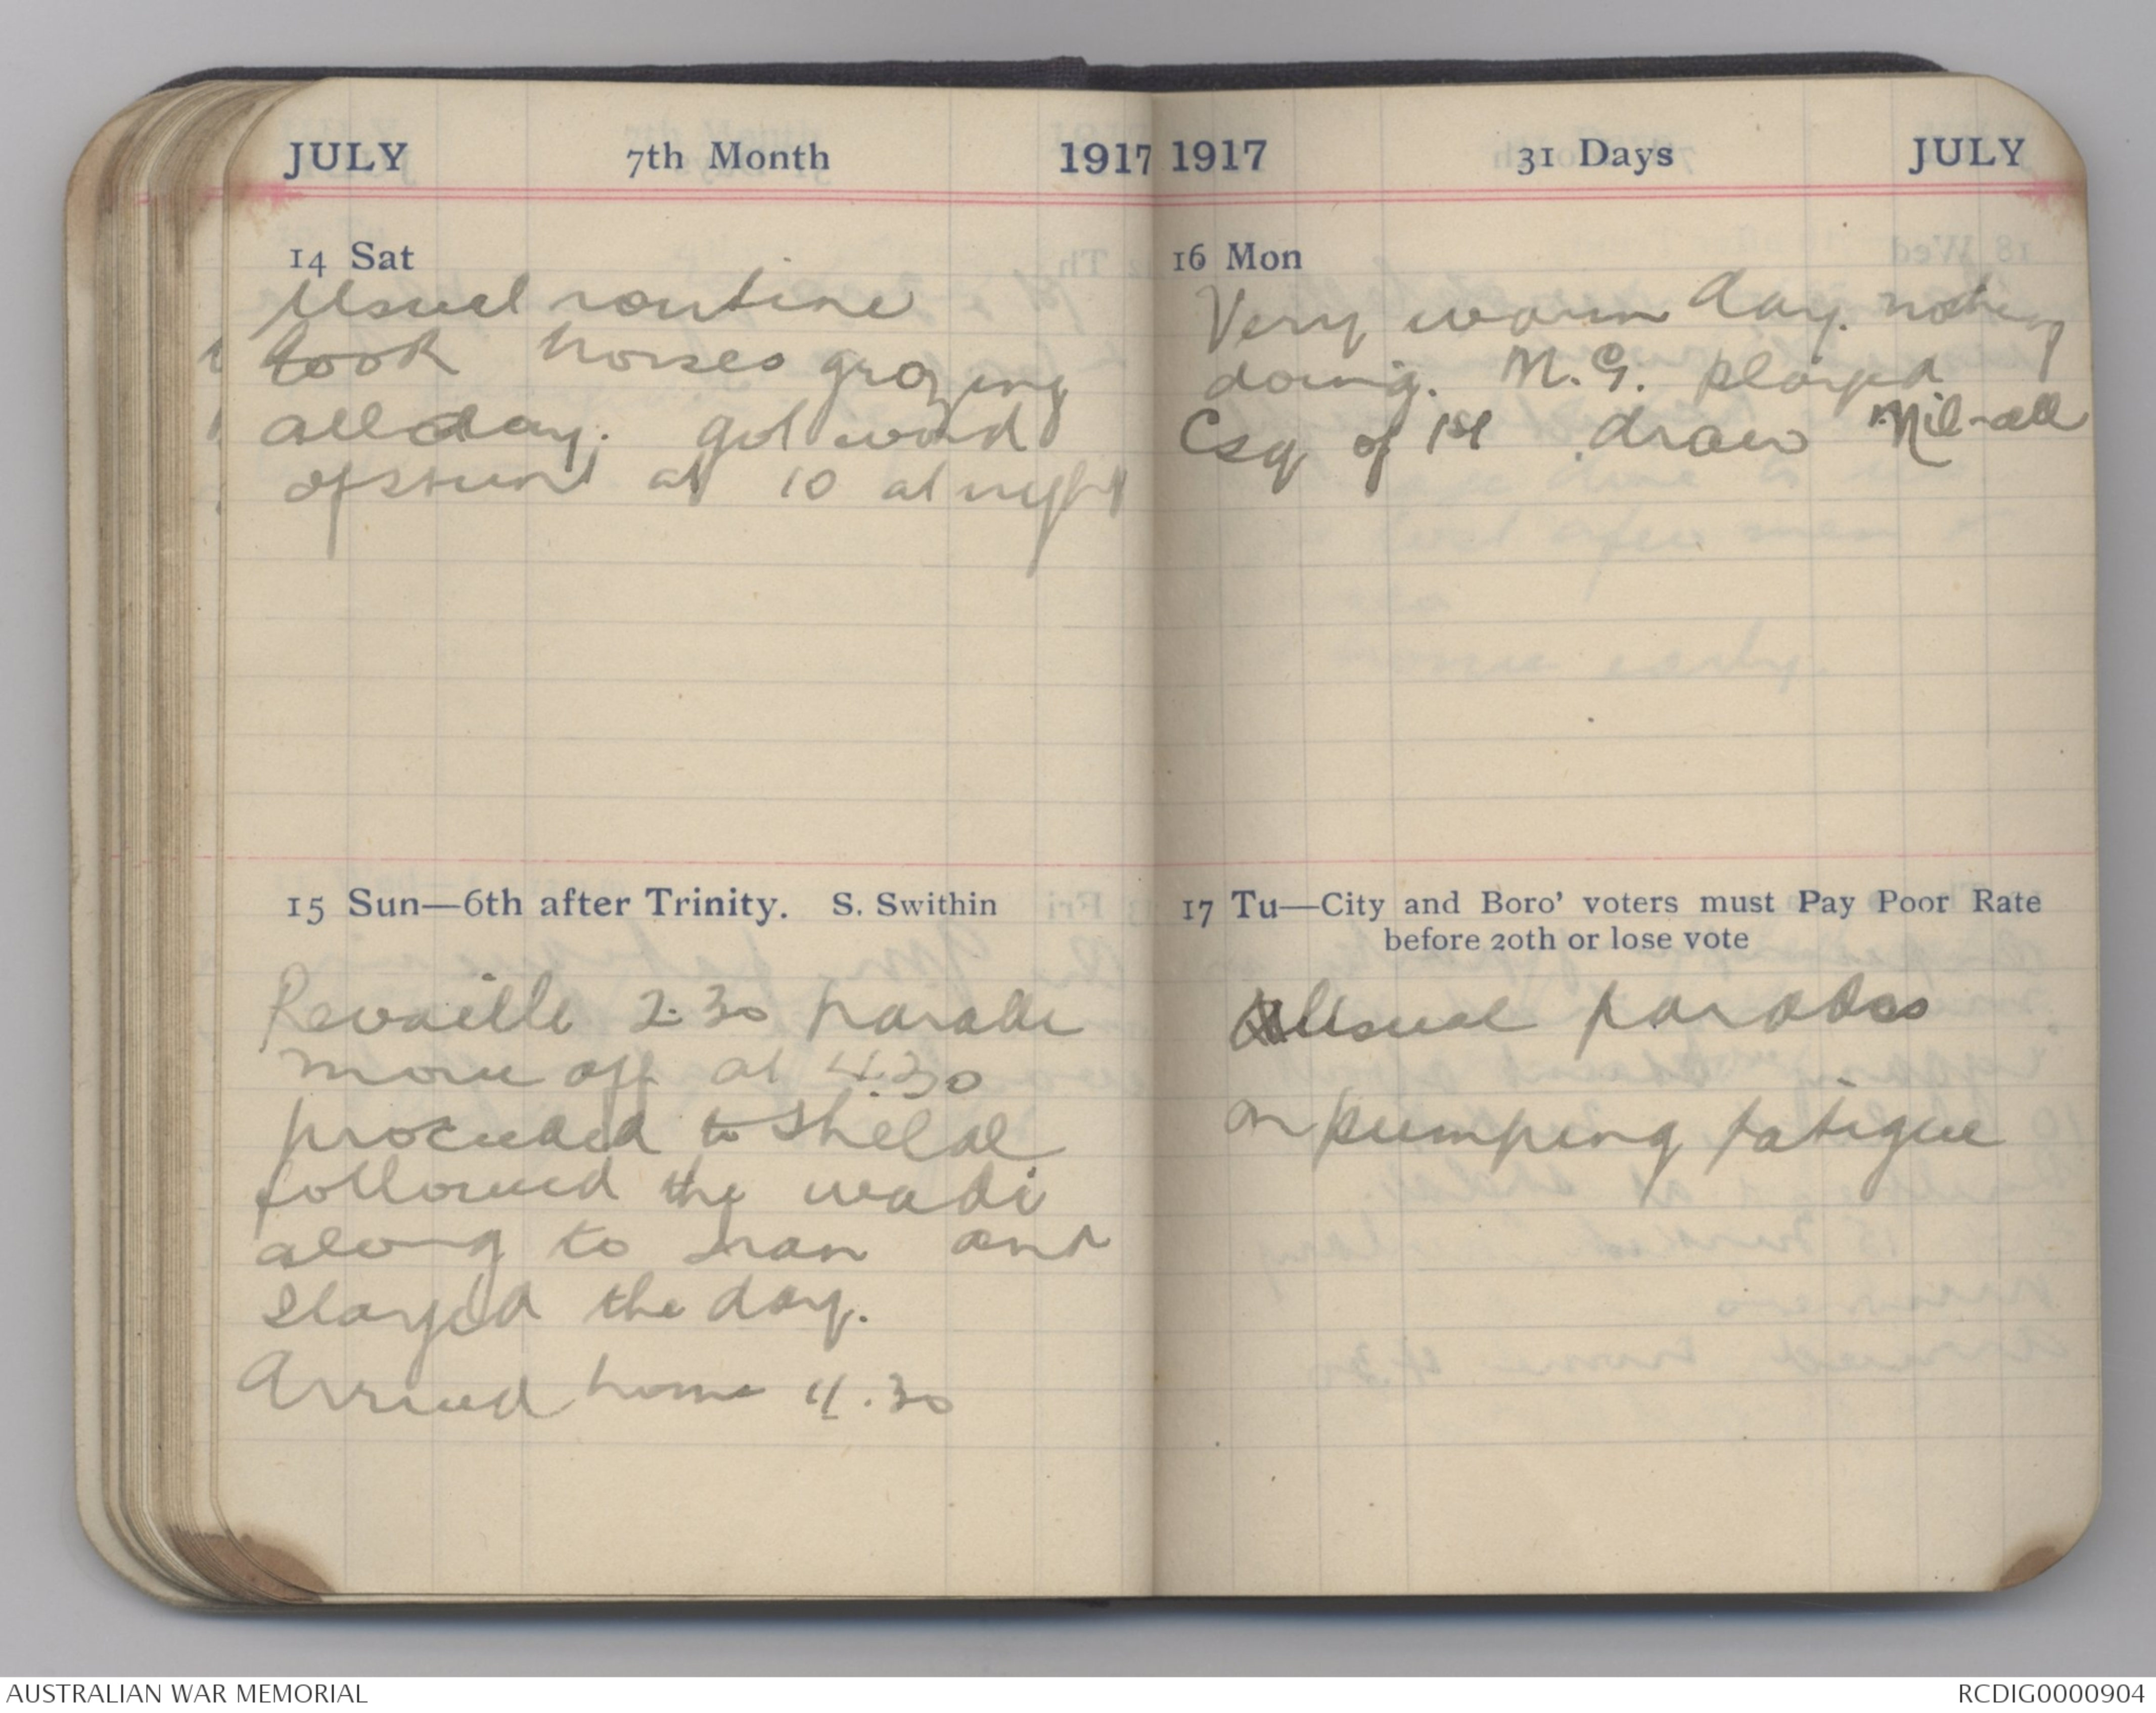 JULY 7th Month 1917
14 Sat
Usual routine
took horses grazing
all day. got word
of stunt at 10 at night
15 Sun—6th after Trinity. S. Swithin
Revaille 2.30 parade
move off at 4.30
proceeded to Shelal
followed the wadi
along to and
stayed the day.
Arrived home 4.30
1917 31 Days JULY
16 Mon
Very warm day. nothing
doing. M.G. played
C sq of 1st draw Nil-all
17 Tu—City and Boro' voters must Pay Poor Rate
before 20th or lose vote
Usual parades
on pumping fatigue
AUSTRALIAN WAR MEMORIAL
RCDIG0000904